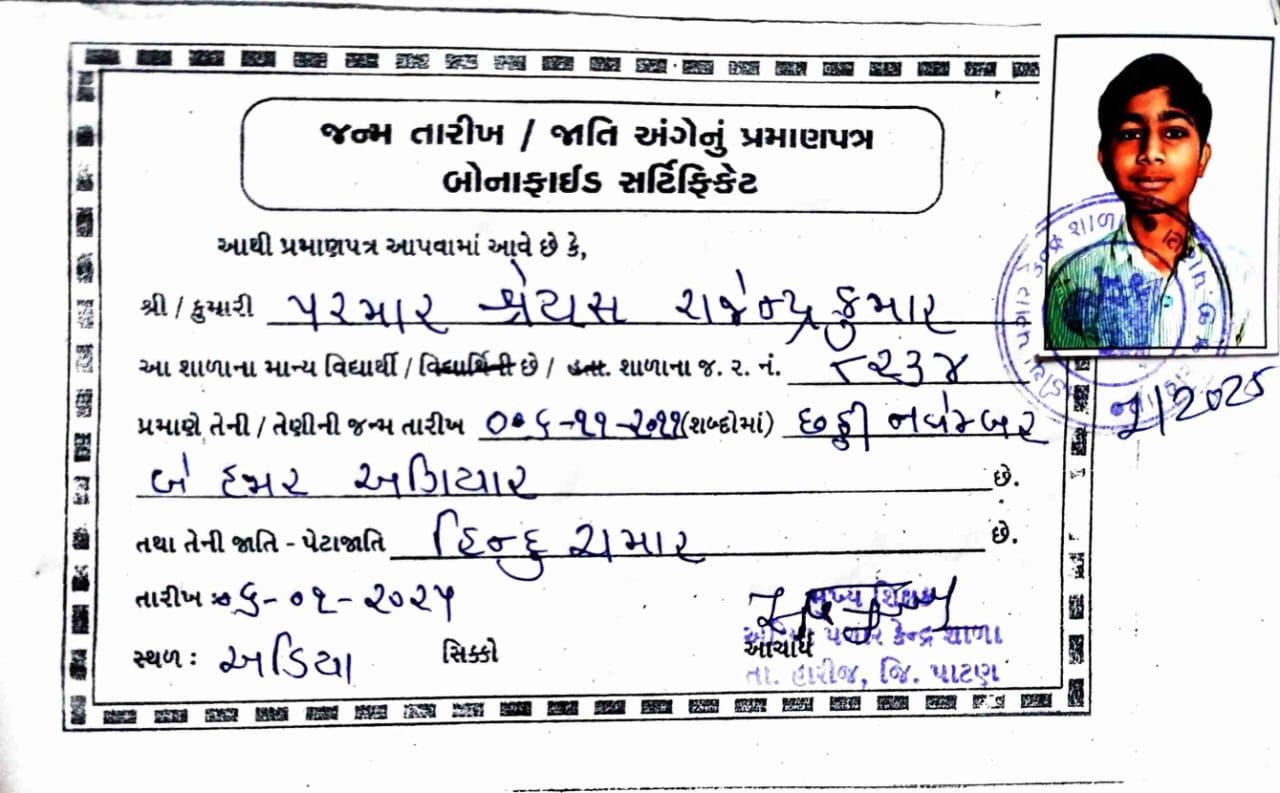 જન્મ તારીખ / જાતિ અંગેનું પ્રમાણપત્ર
બોનાફાઈડ સર્ટિફિકેટ
આથી પ્રમાણપત્ર આપવામાં આવે છે કે,
શ્રી / કુમારી પરમાર શ્રેયસ રાજેન્દ્રકુમાર
આ શાળાના માન્ય વિદ્યાર્થી / વિદ્યાર્થિની છે / હતા. શાળાના જ. ર. નં. ૮૨૩૪
પ્રમાણે તેની / તેણીની જન્મ તારીખ ૦૬-૧૧-૨૦૧૧ (શબ્દોમાં) છઠ્ઠી નવેમ્બર
બે હજાર અગિયાર છે.
તથા તેની જાતિ - પેટાજાતિ હિન્દુ ચમાર છે.
તારીખ : ૦૬-૦૧-૨૦૨૫
સ્થળ : અડિયા
સિક્કો
આચાર્ય
મુખ્ય શિક્ષક
કેન્દ્ર શાળા
તા. હારીજ, જિ. પાટણ
/2025